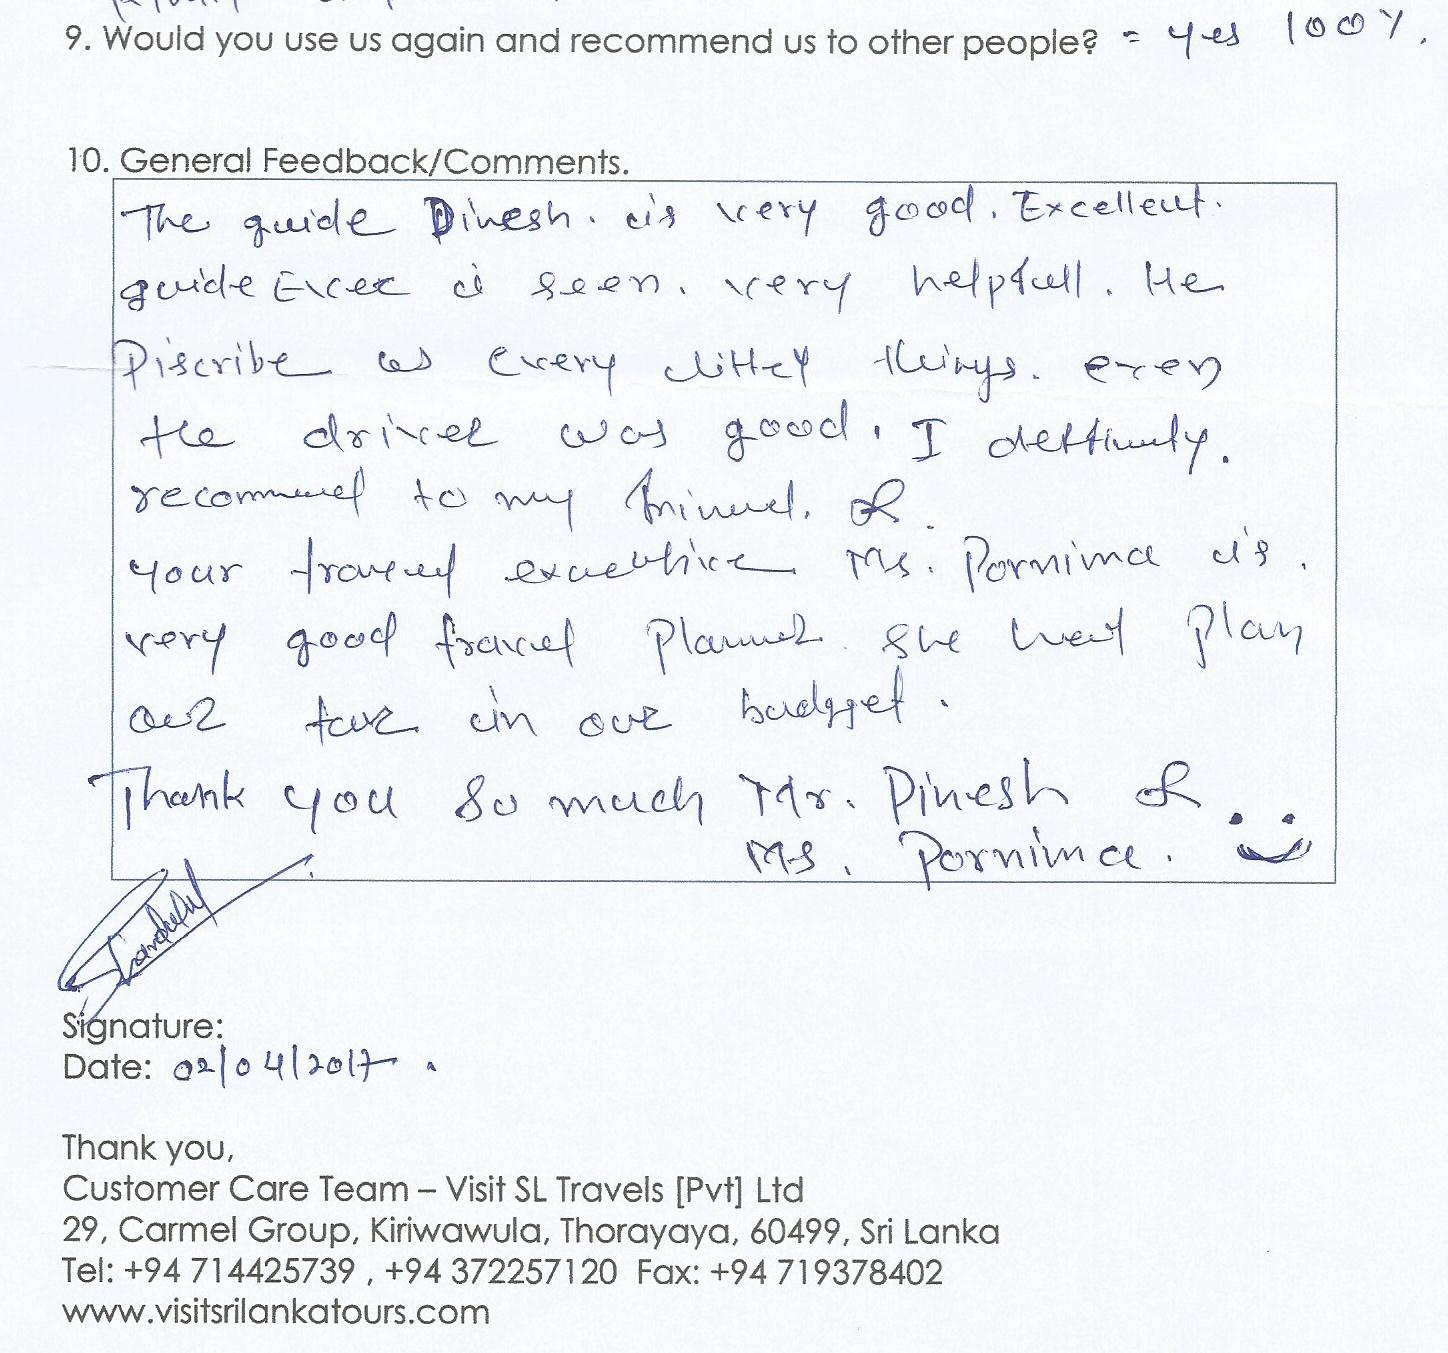 9. Would you use us again and recommend us to other people? = yes 100%.
10. General Feedback/Comments.
The guide Dinesh. is very good. Excellent.
guide Ever i seen. very helpfull. He
Discribe us every littel things. even
the driver was good. I deffinetly.
recommed to my friend. &.
your travel executive Ms. Pornima is.
very good travel Planner. she had plan
our tour in our budgget.
Thank you so much Mr. Dinesh &
Ms. Pornima.
Signature:
Date: 02/04/2017.
Thank you,
Customer Care Team – Visit SL Travels [Pvt] Ltd
29, Carmel Group, Kiriwawula, Thorayaya, 60499, Sri Lanka
Tel: +94 714425739 , +94 372257120 Fax: +94 719378402
www.visitsrilankatours.com